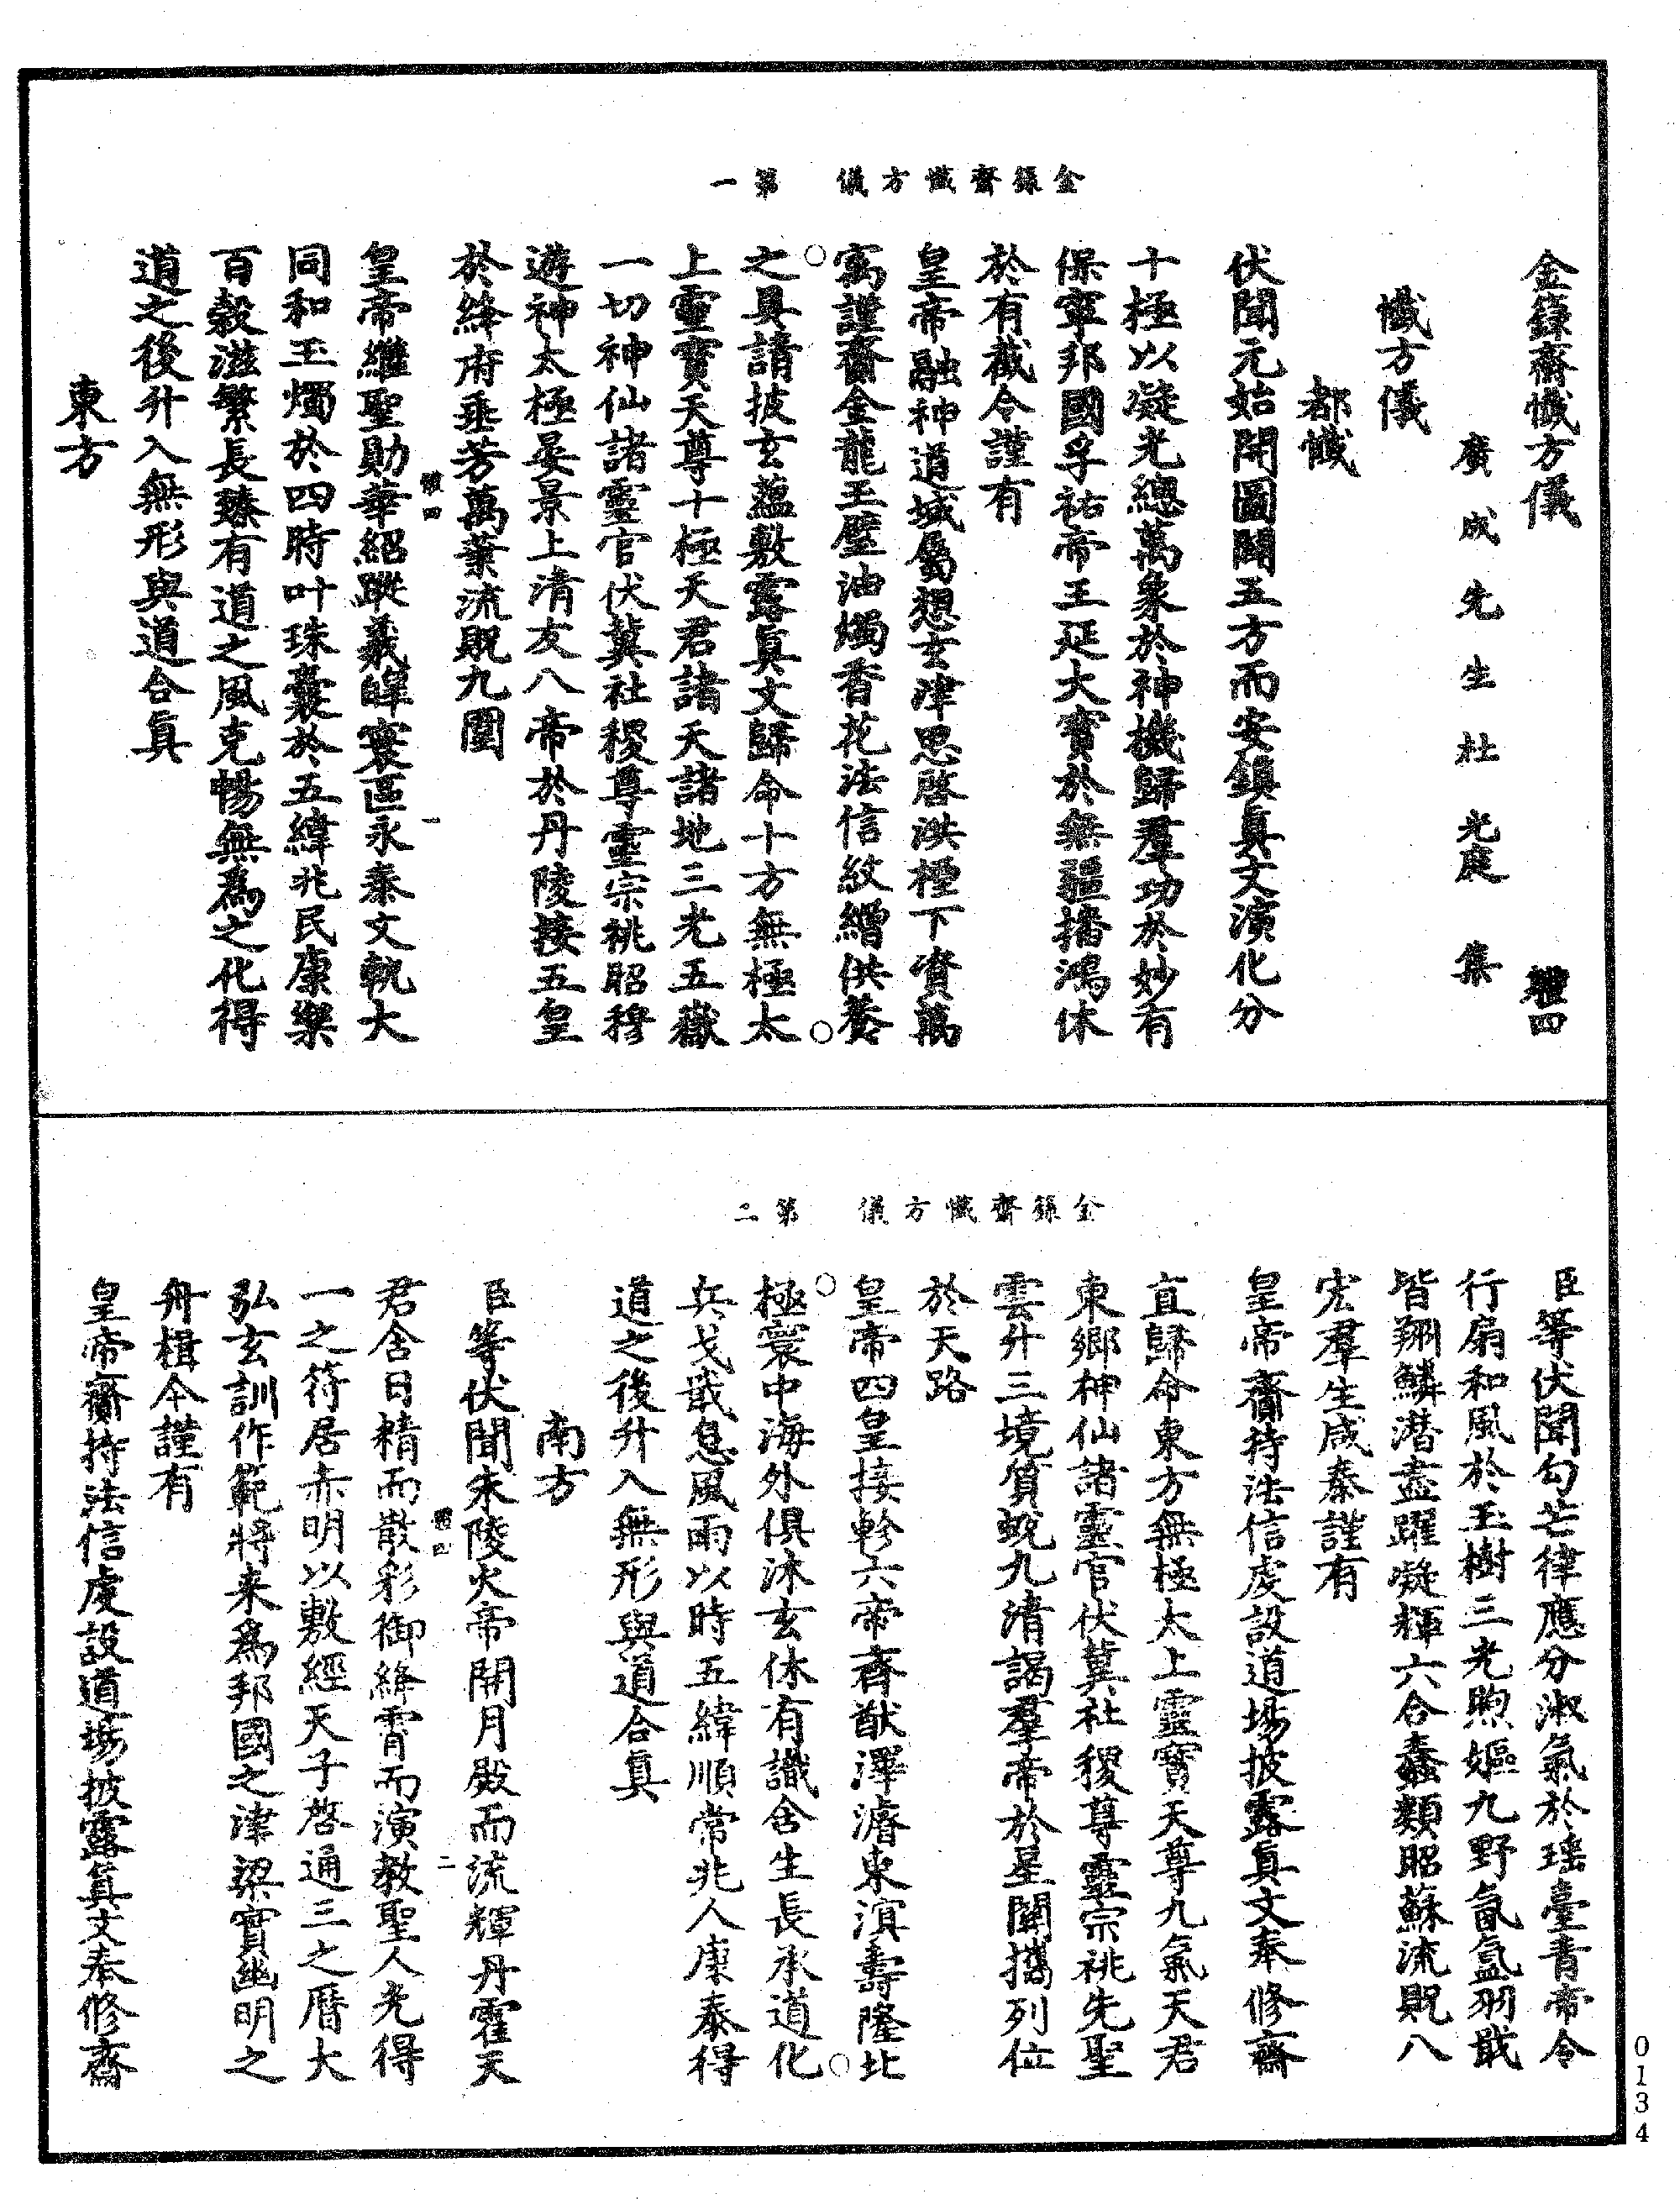 金籙齋懺方儀　第一
金籙齋懺方儀　四
廣成先生杜光庭集
懺方儀
都懺
伏聞元始開圖闢五方而安鎮真文演化分
十極以凝光總萬象於神機歸羣功於妙有
保寧邦國孚祐帝王延大寶於無疆播鴻休
於有截今謹有
皇帝融神道域屬想玄津思啓洪極下資萬
㝢謹齋金龍玉璧油燭香花法信紋繒供養
之具請披玄蘊敷露真文歸命十方無極太
上靈寶天尊十極天君諸天諸地三光五嶽
一切神仙諸靈官伏冀社稷尊靈宗祧昭穆
遊神太極晏景上清友八帝於丹陵接五皇
於絳府垂芳萬葉流貺九圍
皇帝繼聖勛華紹蹤羲皡寰區永泰文軌大
同和玉燭於四時叶珠囊於五緯兆民康樂
百穀滋繁長臻有道之風克暢無爲之化得
道之後升入無形與道合真
東方
金籙齋懺方儀　第二
臣等伏聞勾芒律應分淑氣於瑶臺青帝令
行扇和風於玉樹三光煦嫗九野氤氲羽戢
皆翔鱗潜盡躍凝輝六合蠢類昭蘇流貺八
宏羣生咸泰謹有
皇帝齋持法信虔設道場披露真文奉修齋
直歸命東方無極太上靈寶天尊九氣天君
東鄉神仙諸靈官伏冀社稷尊靈宗祧先聖
雲升三境質蛻九清謁羣帝於星闈擕列位
於天路
皇帝四皇接軫六帝齊猷澤濬東溟壽隆北
極寰中海外俱沐玄休有識含生長承道化
兵戈戢息風雨以時五緯順常兆人康泰得
道之後升入無形與道合真
南方
臣等伏聞朱陵火帝開月殿而流輝丹霍天
君含日精而散彩御絳霄而演教聖人先得
一之符居赤明以敷經天子啓通三之曆大
弘玄訓作範將来爲邦國之津梁實幽明之
舟楫今謹有
皇帝齋持法信虔設道場披露真文奉修齋
0134